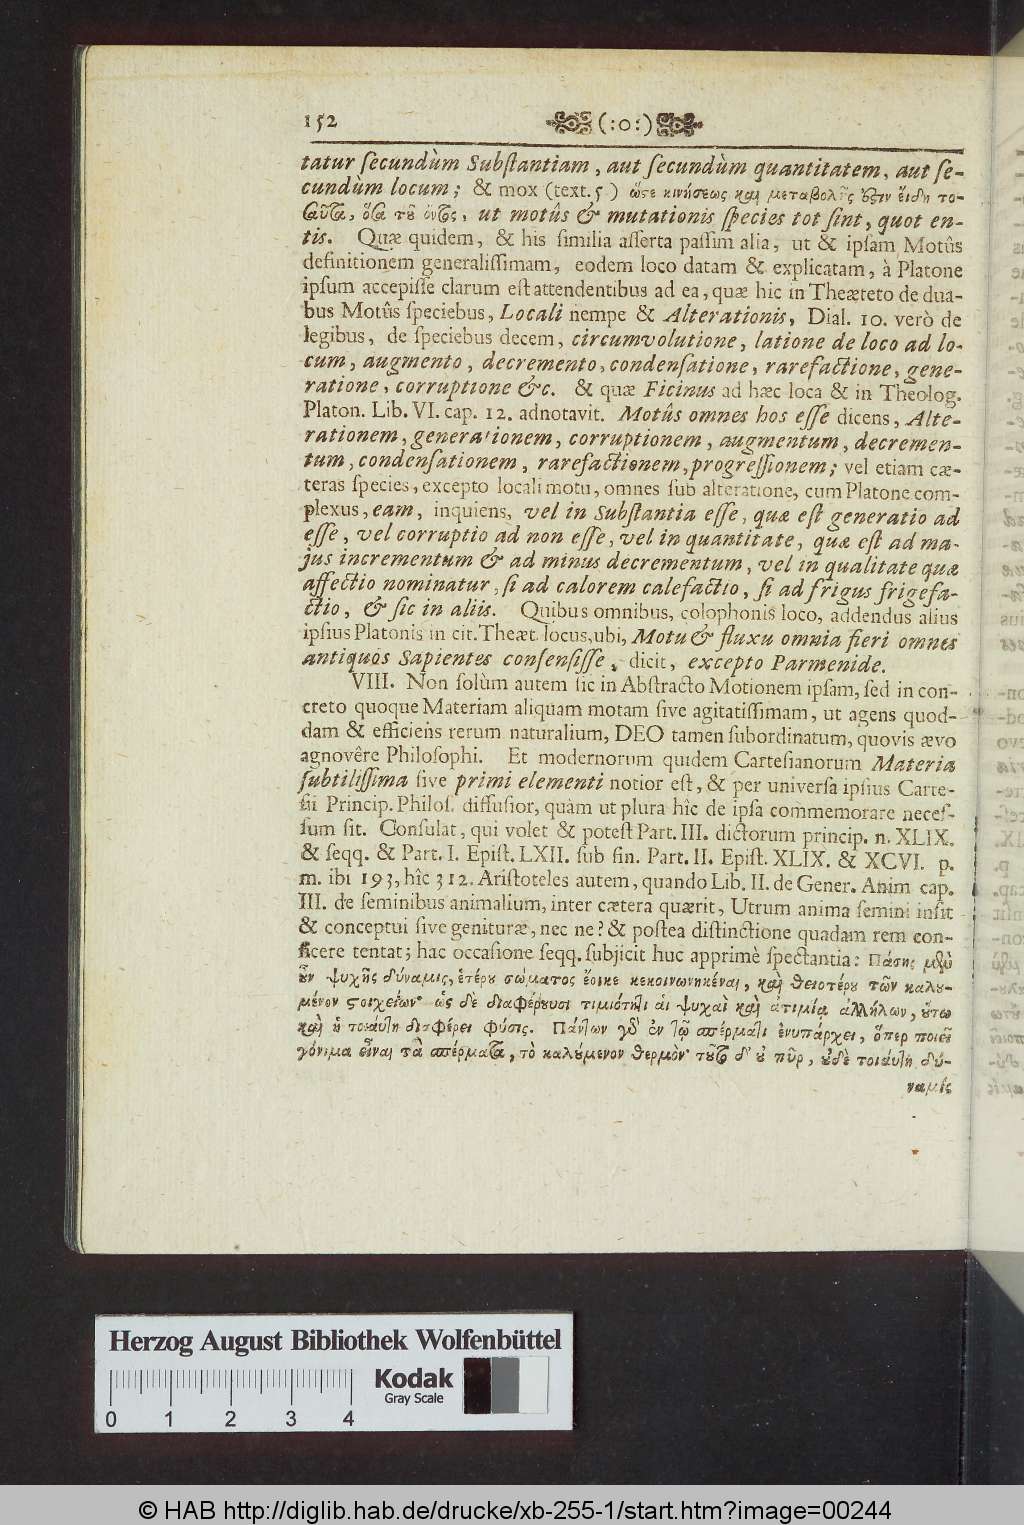 152 (:o:)
tatur ſecundùm Subſtantiam, aut ſecundùm quantitatem, aut ſe-
cundùm locum; & mox (text. 5) ὥςε κινήσεως καὶ μεταβολῆς ἐςιν εἴδη το-
σαῦτα, ὅσα τοῦ ὄντος, ut motûs & mutationis ſpecies tot ſint, quot en-
tis. Quæ quidem, & his ſimilia aſſerta paſſim alia, ut & ipſam Motûs
definitionem generaliſſimam, eodem loco datam & explicatam, à Platone
ipſum accepiſſe clarum eſt attendentibus ad ea, quæ hic in Theæteto de dua-
bus Motûs ſpeciebus, Locali nempe & Alterationis, Dial. 10. verò de
legibus, de ſpeciebus decem, circumvolutione, latione de loco ad lo-
cum, augmento, decremento, condenſatione, rarefactione, gene-
ratione, corruptione &c. & quæ Ficinus ad hæc loca & in Theolog.
Platon. Lib. VI. cap. 12. adnotavit. Motûs omnes hos eſſe dicens, Alte-
rationem, generationem, corruptionem, augmentum, decremen-
tum, condenſationem, rarefactionem, progreſſionem; vel etiam cæ-
teras ſpecies, excepto locali motu, omnes ſub alteratione, cum Platone com-
plexus, eam, inquiens, vel in Subſtantia eſſe, quæ eſt generatio ad
eſſe, vel corruptio ad non eſſe, vel in quantitate, quæ eſt ad ma-
jus incrementum & ad minus decrementum, vel in qualitate quæ
affectio nominatur, ſi ad calorem calefactio, ſi ad frigus frigefa-
ctio, & ſic in aliis. Quibus omnibus, colophonis loco, addendus alius
ipſius Platonis in cit. Theæt. locus, ubi, Motu & fluxu omnia fieri omnes
antiquos Sapientes conſenſiſſe, dicit, excepto Parmenide.
VIII. Non ſolùm autem ſic in Abſtracto Motionem ipſam, ſed in con-
creto quoque Materiam aliquam motam ſive agitatiſſimam, ut agens quod-
dam & efficiens rerum naturalium, DEO tamen ſubordinatum, quovis ævo
agnovêre Philoſophi. Et modernorum quidem Carteſianorum Materia
ſubtiliſſima ſive primi elementi notior eſt, & per univerſa ipſius Carte-
ſii Princip. Philoſ. diffuſior, quàm ut plura hîc de ipſa commemorare neceſ-
ſum ſit. Conſulat, qui volet & poteſt Part. III. dictorum princip. n. XLIX.
& ſeqq. & Part. I. Epiſt. LXII. ſub fin. Part. II. Epiſt. XLIX. & XCVI. p.
m. ibi 193, hîc 312. Ariſtoteles autem, quando Lib. II. de Gener. Anim cap.
III. de ſeminibus animalium, inter cætera quærit, Utrum anima ſemini inſit
& conceptui ſive genituræ, nec ne? & poſtea diſtinctione quadam rem con-
ficere tentat; hac occaſione ſeqq. ſubjicit huc apprimè ſpectantia: Πάσης μὲν
οὖν ψυχῆς δύναμις, ἑτέρου σώματος ἔοικε κεκοινωνηκέναι, καὶ θειοτέρου τῶν καλου-
μένων ςοιχείων· ὡς δὲ διαφέρουσι τιμιότητι αἱ ψυχαὶ καὶ ἀτιμίᾳ ἀλλήλων, οὕτω
καὶ ἡ τοιαύτη διαφέρει φύσις. Πάντων γὸ ἐν τῷ σπέρματι ἐνυπάρχει, ὅπερ ποιεῖ
γόνιμα εἶναι τὰ σπέρματα, τὸ καλούμενον θερμὸν· τοῦτο δ' οὐ πῦρ, οὐδὲ τοιαύτη δύ-
ναμις
Herzog August Bibliothek Wolfenbüttel
0 1 2 3 4
Kodak
Gray Scale
© HAB http://diglib.hab.de/drucke/xb-255-1/start.htm?image=00244